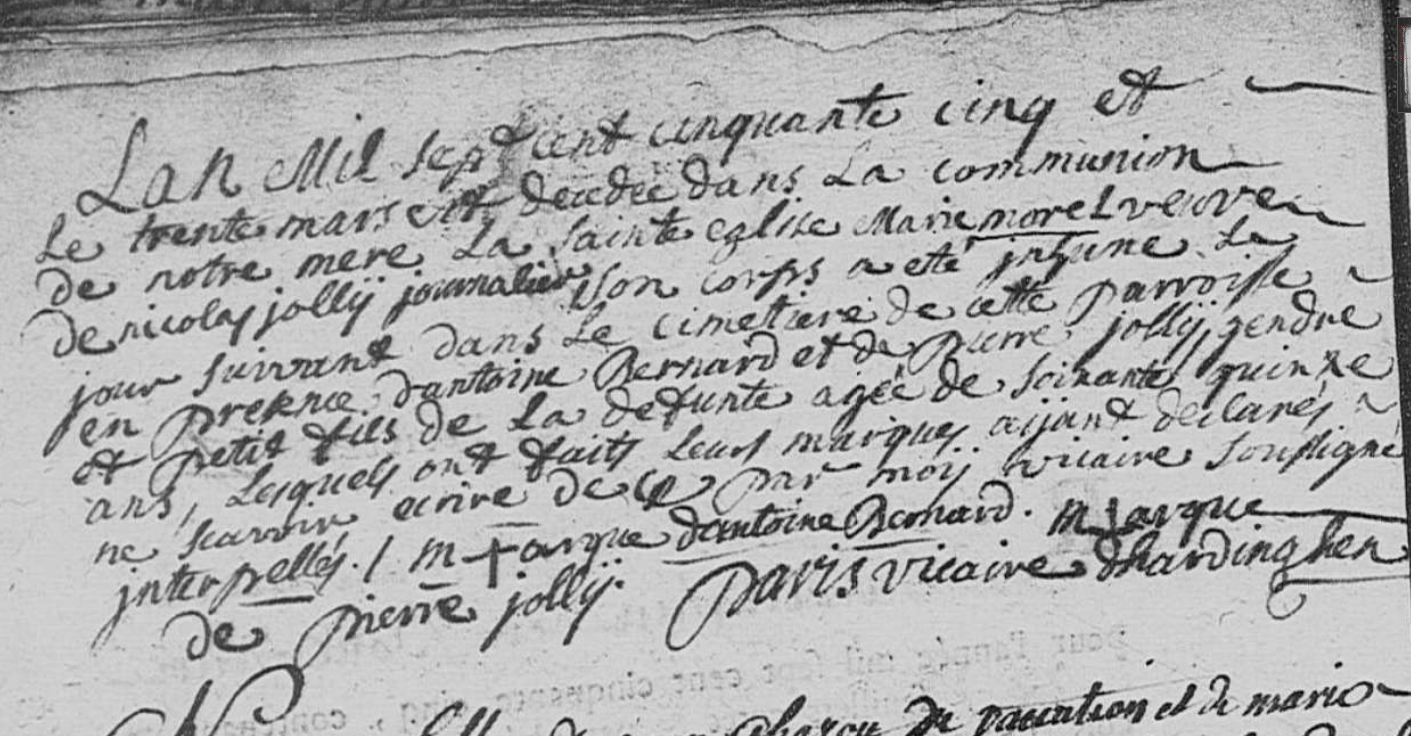 Lan Mil sept cent cinquante cinq et
Le trente mars est decedée dans La communion
de notre mere La sainte eglise Marie morel veuve
de nicolas jollÿ journalier son corps a eté inhumé Le
jour suivant dans Le cimetiere de cette parroisse
en presence d'antoine Bernard et de pierre jollÿ gendre
et petit fils de La defunte agée de soixante quinze
ans, Lesquels ont faits Leurs marques aÿant declarés
ne scavoir ecrire de ce par moÿ vicaire soussigné
interpellés. / m+arque d'antoine Bernard. m+arque
de pierre jollÿ. paris vicaire d'hardinghen
de vacation et de marie